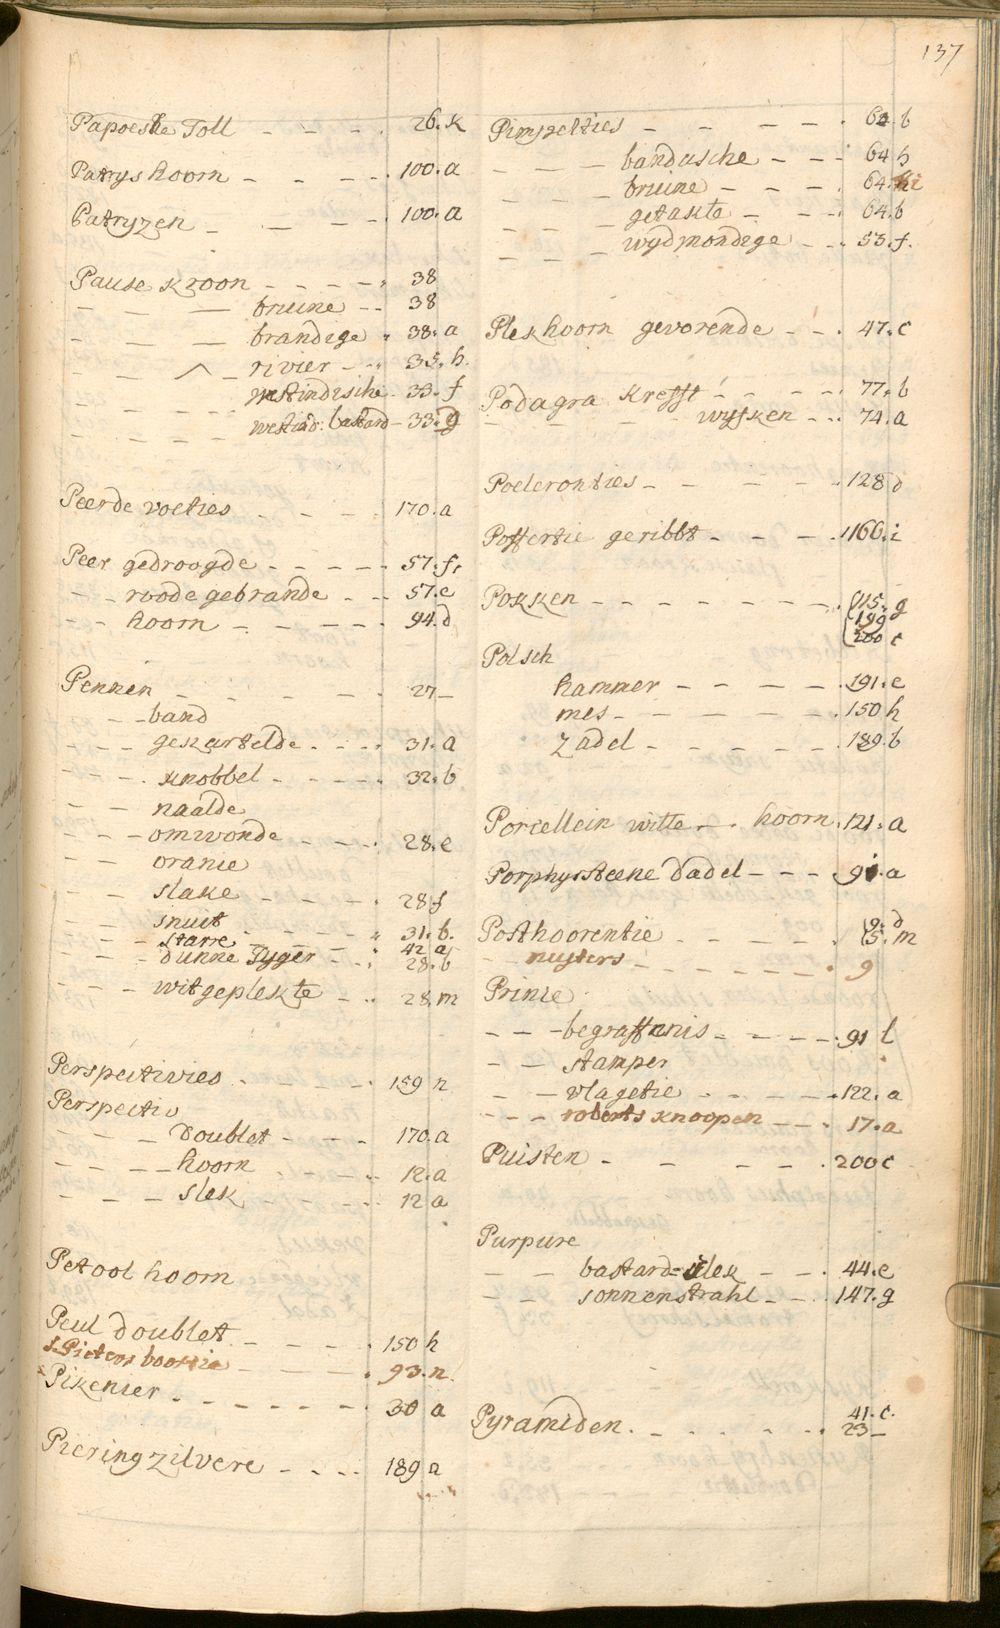 137
Papoeshe Toll - - - - . 26. k
Patrys hoorn - - - - . 100. a
Patryzen - - - - 100. a
Pause kroon - - - - . 38
- - - bruine - - 38
- - - brandige . 38. a
- - - rivier - - . 35. h.
- - - westindische - 33. f
- - - - westind: bastard - 33. g
Peerde voeties - - - - 170. a
Peer gedroogde - - - - - 57. f.
- - roode gebrande - - - 57. e
- - - hoorn - - - - - 94. d
Pennen - - - - - - 27 -
- - band
- - - gekartelde - - - - 31. a
- - - knobbel - - - - - 32. b
- - naalde
- - - omwonde - - - - 28. e
- - oranie
- - - slake - - - - - 28 f
- - snuit - - - - - . 31. b.
- - - starre - - - - . 42 a
- - - dunne Tyger - - . 28. b
- - - witgeplekte - - . 28. m
Perspectivies - - - - - - 159 n
Perspectiv
- - - doublet - - - - 170. a
- - - - hoorn - - - - - 12. a
- - - - slek - - - - - 12 a
Petool hoorn
Peul doublet - - - - - 150 h
S. Pieters bootie - - - - . 93. n.
Pikenier - - - - - - - 30 a
Piering zilvere - - - - 189 a
Pimpelties - - - - . 60. b
- - - bandasche - - - 64 h
- - - bruine - - - . 64. i
- - - getakte - - - . 64. b
- - - wydmondege - - . 53. f.
Plekhoorn gevorende - - . 47. c
Podagra krefft - - - - - 77. b
- - - - wyfken - - . 74. a
Poeleronties - - - - - - 128 d
Poffertie geribbt - - - - . 1166. i
Pokken - - - - - - - - 115. g
189
200 c
Polsch
hammer - - - - - . 191. e
mes - - - - - - . 150 h
zadel - - - - - - . 189. b
Porcellein witte - . hoorn . 121. a
Porphyrsteene dadel - - - . 91. a
Posthoorentie - - - - - - 9. d
5. m
- - nuyters - - - - - - - . 9
Prince
- - - begraffenis - - - - - . 91 l
- - stamper
- - - vlagetie - - - - . 122. a
- - - roberts knoopen - - - 17. a
Puisten - - - - - . 200 c
Purpure
- - bastard = slek - - . 44. e
- - sonnenstrahl - - - 147. g
Pyramiden. - - - - - . 41. c.
23 -